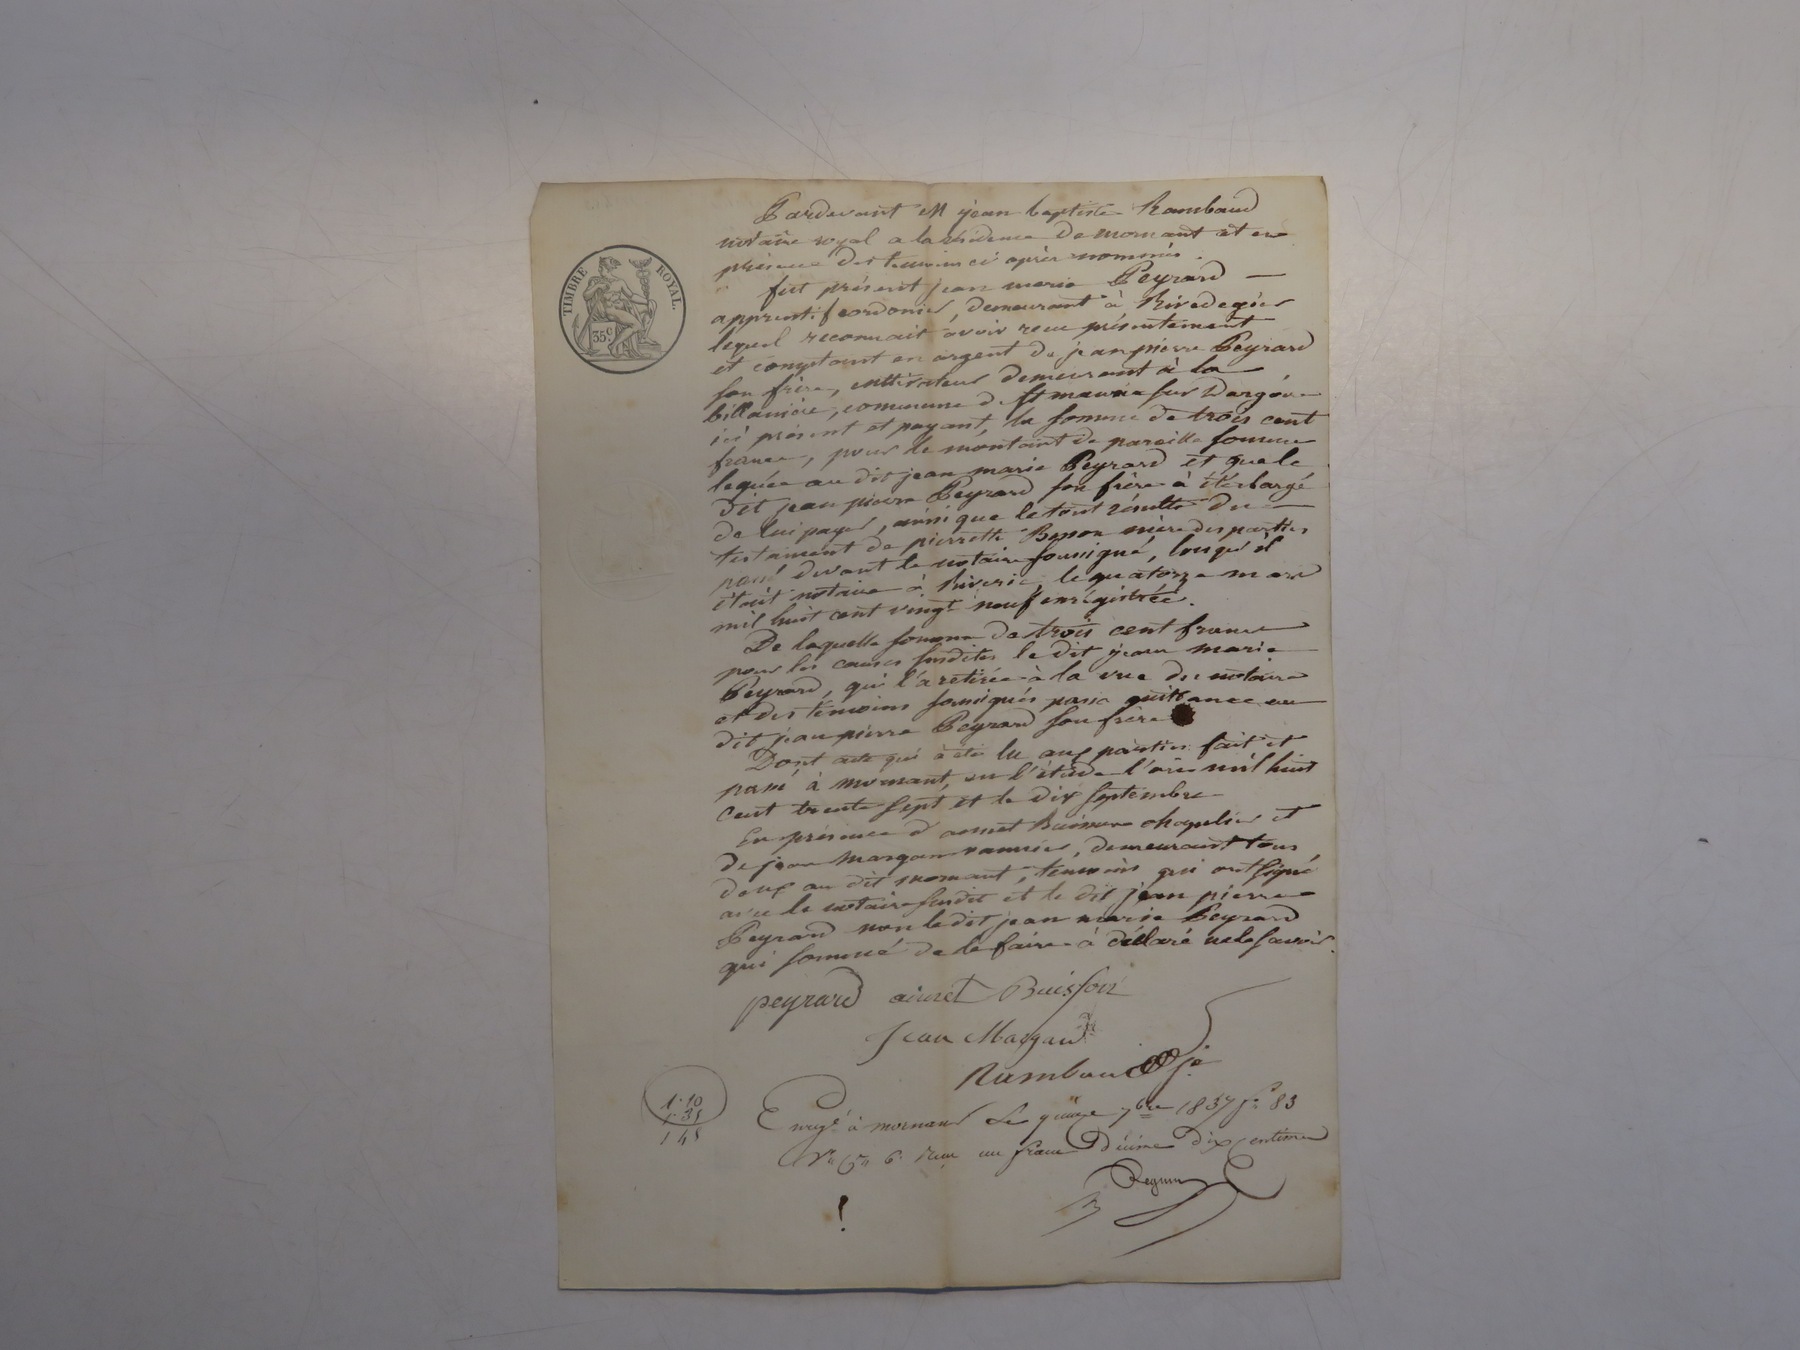 Pardevant M jean baptiste Rambaud
notaire royal a la résidence De mornant et en
présence des temoins ci après nommés.
TIMBRE ROYAL
35 c
fut présent jean marie Peyrard
apprentif cordonier, demeurant à Rivedegier
lequel reconnait avoir recu présentement
et comptant en argent de jean pierre Peyrard
son frère, cultivateur demeurant à la
billanière, commune de St maurice sur Dargoire
ici présent et payant, la somme de trois cent
francs, pour le montant de pareille somme
leguée au dit jean marie Peyrard et que le
dit jean pierre Peyrard son frère à été chargé
de lui payer, ainsi que le tout résulte du
testament de pierrette Besson mère des parties
passé devant le notaire soussigné, lorsqu'il
était notaire à Riverie, le quatorze mars
mil huit cent vingt neuf enrégistrée.
De laquelle somme de trois cent francs
pour les causes susdites le dit jean marie
Peyrard, qui l'a retirée à la vue du notaire
et des témoins soussignés passe quittance au
dit jean pierre Peyrard son frère
Dont acte qui à été lu aux parties fait et
passé à mornant, en l'étude l'an mil huit
cent trente sept et le dix septembre
En présence d' aimet Buisson chapelier et
de jean Margaud vannier, demeurant tous
deux au dit mornant, témoins qui ont signé
avec le notaire susdit et le dit jean pierre
Peyrard non le dit jean marie Peyrard
qui sommé de le faire à déclaré ne le savoir.
peyrard aimet Buisson
Jean Margaud
Rambaud
1.10
1.45
Enregé à mornant Le quinze 7bre 1837 fo 83
Vo Cn 6. reçu un franc Décime dix centimes